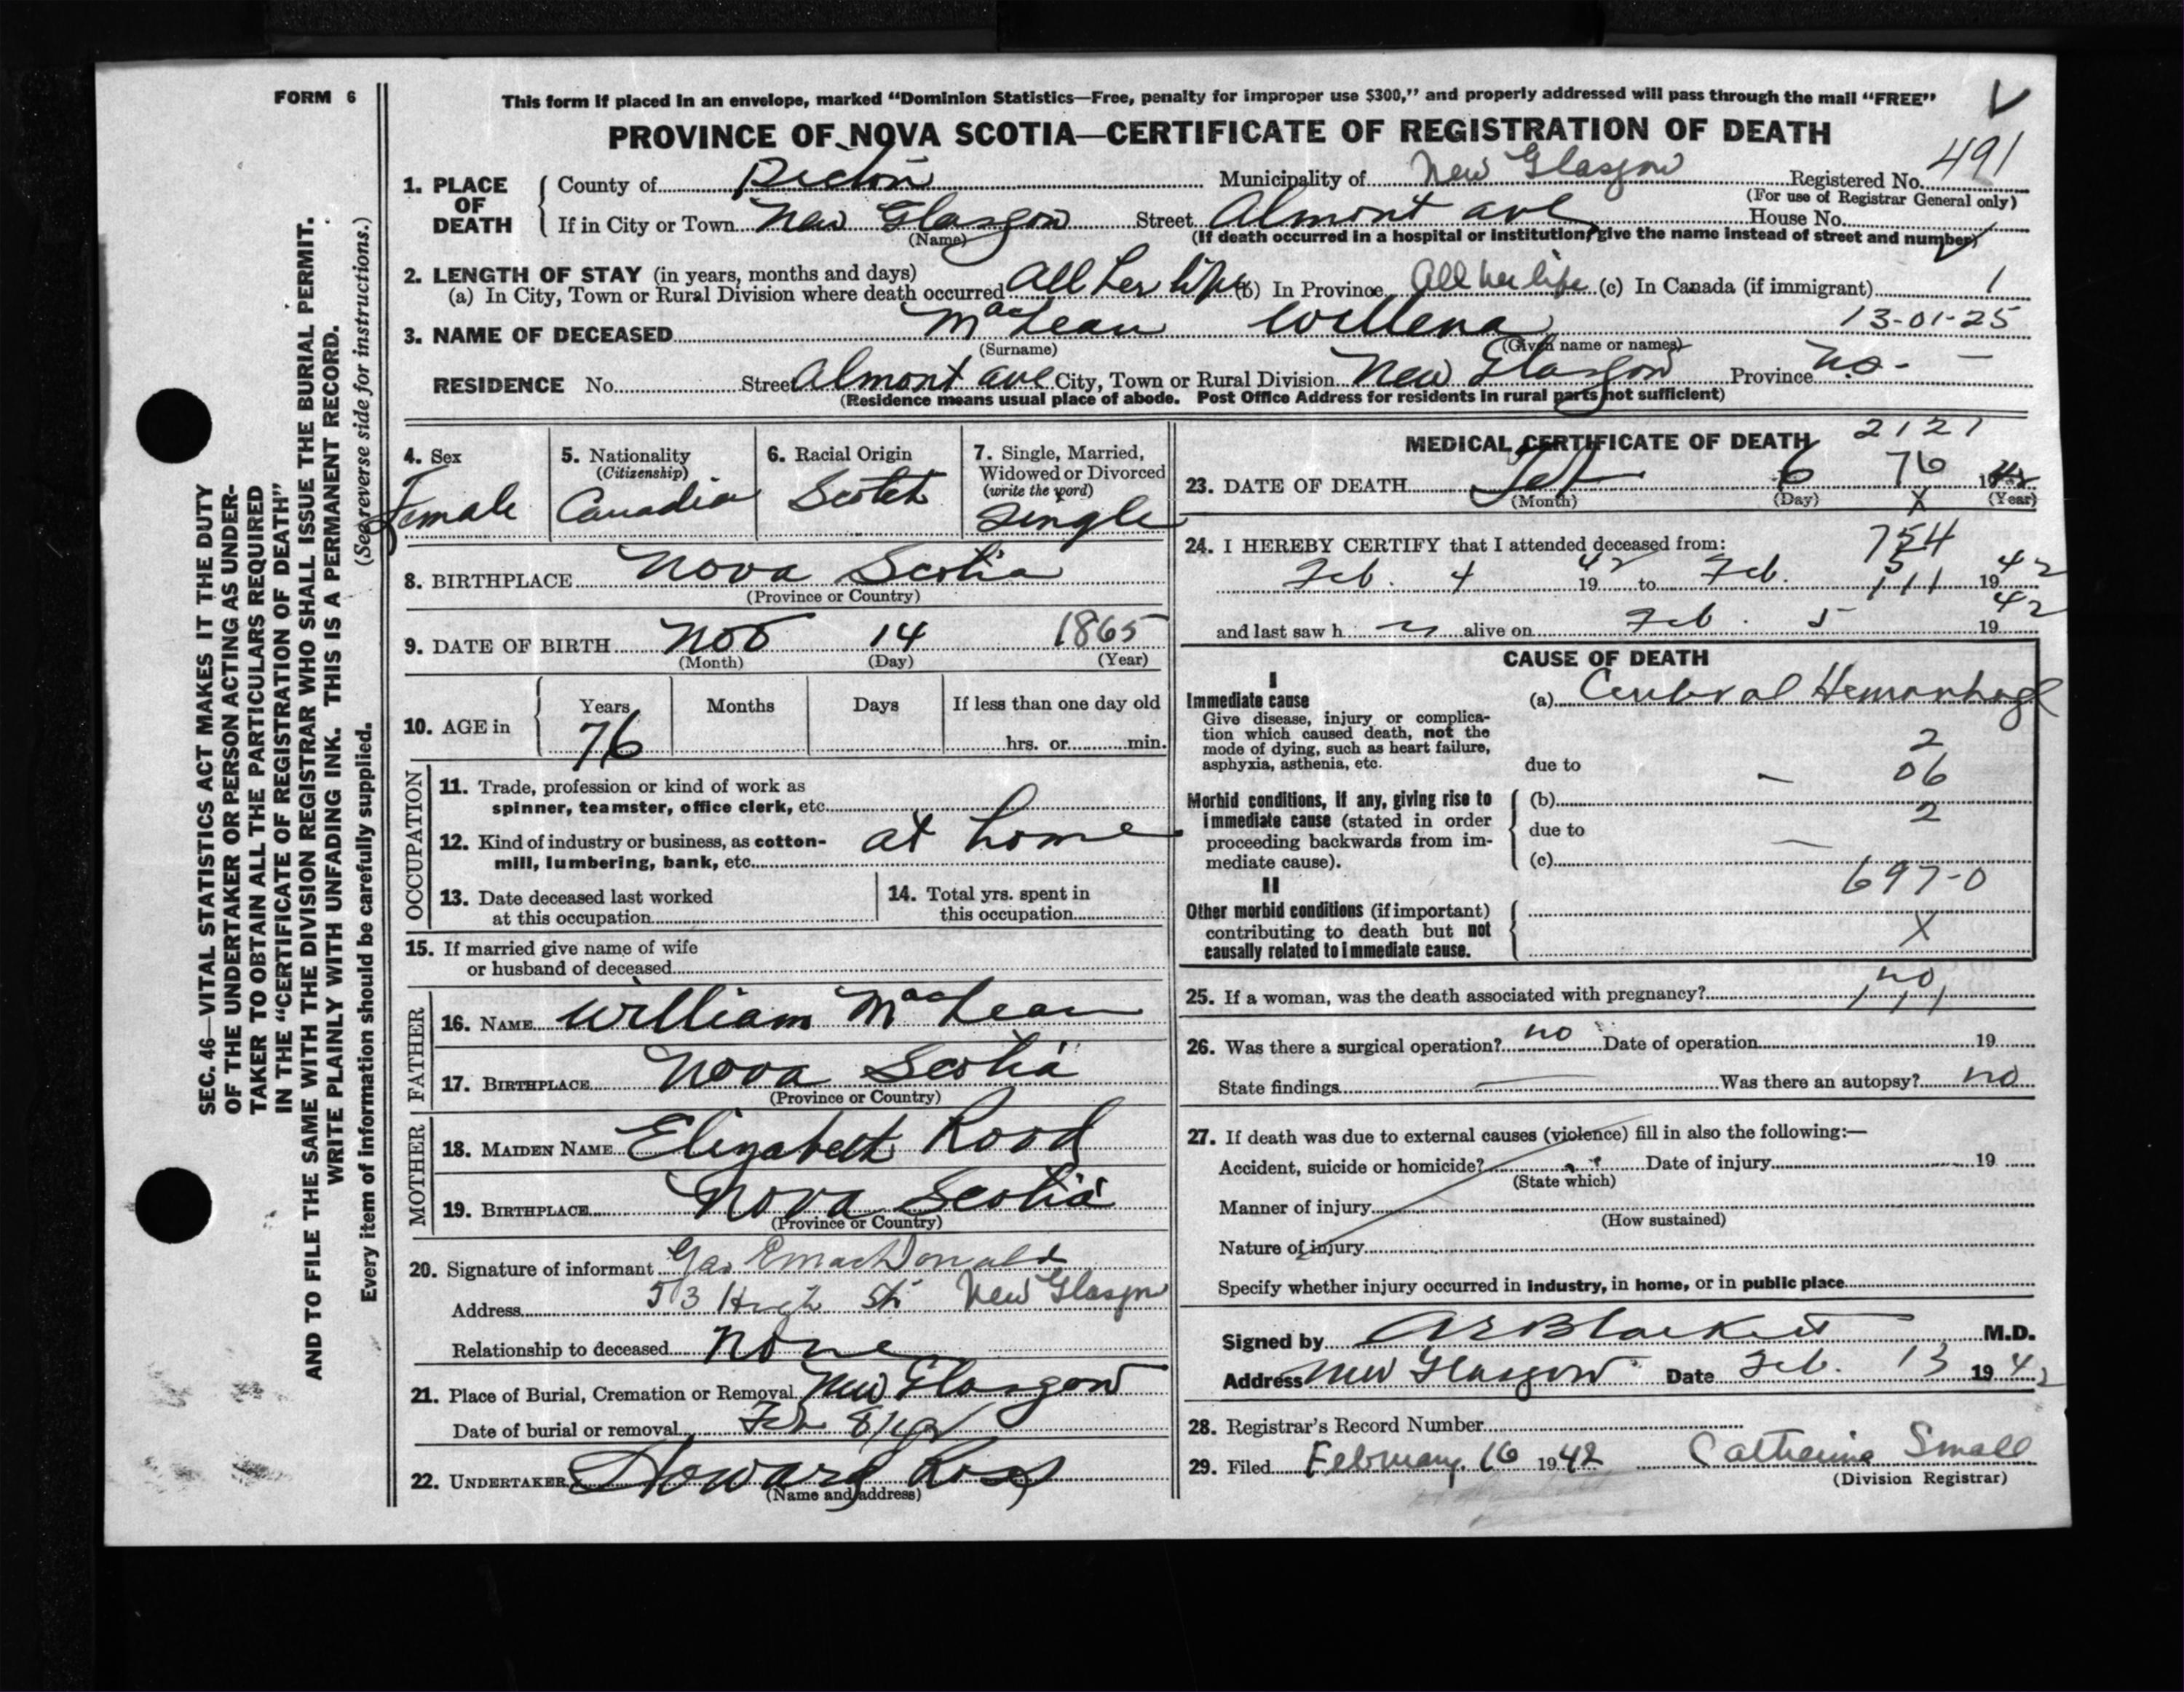 FORM 6
This form if placed in an envelope, marked “Dominion Statistics—Free, penalty for improper use $300,” and properly addressed will pass through the mail “FREE”
PROVINCE OF NOVA SCOTIA—CERTIFICATE OF REGISTRATION OF DEATH
491
1. PLACE OF DEATH County of Pictou Municipality of New Glasgow Registered No.
(For use of Registrar General only)
If in City or Town New Glasgow Street Almont ave House No.
(Name) (If death occurred in a hospital or institution, give the name instead of street and number)
2. LENGTH OF STAY (in years, months and days)
(a) In City, Town or Rural Division where death occurred All her life (b) In Province All her life (c) In Canada (if immigrant) 1
3. NAME OF DECEASED MacLean Willena 13-01-25
(Surname) (Given name or names)
RESIDENCE No. Street Almont ave City, Town or Rural Division New Glasgow Province N.S. -
(Residence means usual place of abode. Post Office Address for residents in rural parts not sufficient)
4. Sex
Female
5. Nationality
(Citizenship)
Canadia
6. Racial Origin
Scotch
7. Single, Married,
Widowed or Divorced
(write the word)
Single
8. BIRTHPLACE Nova Scotia
(Province or Country)
9. DATE OF BIRTH Nov 14 1865
(Month) (Day) (Year)
10. AGE in
Years Months Days If less than one day old
76 hrs. or min.
OCCUPATION
11. Trade, profession or kind of work as
spinner, teamster, office clerk, etc.
12. Kind of industry or business, as cotton-
mill, lumbering, bank, etc. at home
13. Date deceased last worked
at this occupation
14. Total yrs. spent in
this occupation
15. If married give name of wife
or husband of deceased
FATHER
16. NAME William MacLean
17. BIRTHPLACE Nova Scotia
(Province or Country)
MOTHER
18. MAIDEN NAME Elizabeth Rood
19. BIRTHPLACE Nova Scotia
(Province or Country)
20. Signature of informant E MacDonald
Address 53 High St New Glasgow
Relationship to deceased None
21. Place of Burial, Cremation or Removal New Glasgow
Date of burial or removal Feb 8/42
22. UNDERTAKER Howard Ross
(Name and address)
MEDICAL CERTIFICATE OF DEATH 2121
23. DATE OF DEATH Feb 6 76 1942
(Month) (Day) X (Year)
24. I HEREBY CERTIFY that I attended deceased from: 754
Feb. 4 1942 to Feb. 5 111 1942
and last saw h er alive on Feb. 5 1942
CAUSE OF DEATH
I
Immediate cause
Give disease, injury or complica-
tion which caused death, not the
mode of dying, such as heart failure,
asphyxia, asthenia, etc.
(a) Cerebral Hemorrhage
2
due to
06
Morbid conditions, if any, giving rise to
immediate cause (stated in order
proceeding backwards from im-
mediate cause).
(b)
2
due to
(c)
697-0
II
Other morbid conditions (if important)
contributing to death but not
causally related to immediate cause.
X
25. If a woman, was the death associated with pregnancy? no
26. Was there a surgical operation? no Date of operation 19
State findings Was there an autopsy? no
27. If death was due to external causes (violence) fill in also the following:—
Accident, suicide or homicide? Date of injury 19
(State which)
Manner of injury
(How sustained)
Nature of injury
Specify whether injury occurred in industry, in home, or in public place
Signed by A E Blackett M.D.
Address New Glasgow Date Feb. 13 1942
28. Registrar’s Record Number
29. Filed February 16 1942 Catherine Small
(Division Registrar)
SEC. 46—VITAL STATISTICS ACT MAKES IT THE DUTY
OF THE UNDERTAKER OR PERSON ACTING AS UNDER-
TAKER TO OBTAIN ALL THE PARTICULARS REQUIRED
IN THE “CERTIFICATE OF REGISTRATION OF DEATH”
AND TO FILE THE SAME WITH THE DIVISION REGISTRAR WHO SHALL ISSUE THE BURIAL PERMIT.
WRITE PLAINLY WITH UNFADING INK. THIS IS A PERMANENT RECORD.
(See reverse side for instructions.)
Every item of information should be carefully supplied.